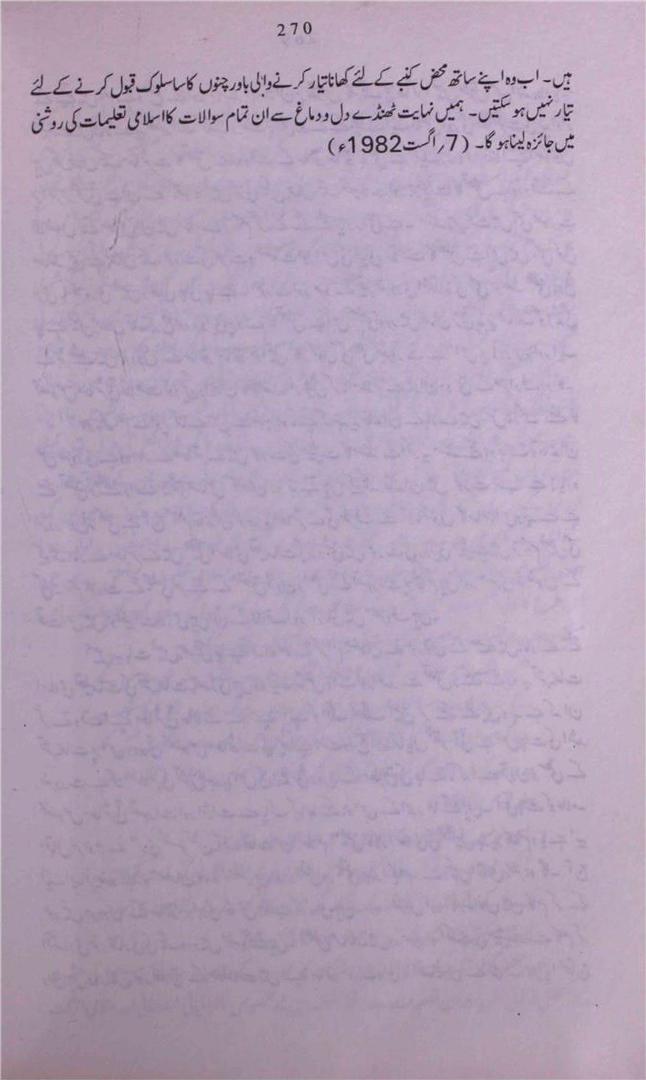 270
ہیں۔ اب وہ اپنے ساتھ محض کنبے کے لئے کھانا تیار کرنے والی باورچنوں کا سا سلوک قبول کرنے کے لئے
تیار نہیں ہو سکتیں۔ ہمیں نہایت ٹھنڈے دل و دماغ سے ان تمام سوالات کا اسلامی تعلیمات کی روشنی
میں جائزہ لینا ہو گا۔ (7؍ اگست 1982ء)